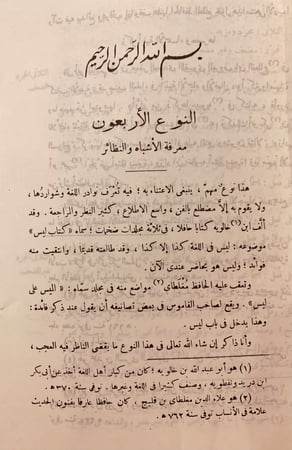 بسم الله الرحمن الرحيم
النوع الأربعون
معرفة الأشباه والنظائر
هذا نوع مهم، ينبغى الاعتناء به؛ فبه تُعرَف نوادر اللغة وشواردها،
ولا يقوم به إلا مضطلع بالفن، واسع الاطلاع، كثير النظر والمراجعة. وقد
ألف ابن(١) خالويه كتابا حافلا، فى ثلاثة مجلدات ضخمات؛ سماه «كتاب ليس»
موضوعه: ليس فى اللغة كذا إلا كذا، وقد طالعته قديما، وانتقيت منه
فوائد؛ وليس هو بحاضر عندى الآن.
وتعقب عليه الحافظ مُغُلْطاى(٢) مواضع منه فى مجلد سماه: «الميس على
ليس». ويقع لصاحب القاموس فى بعض تصانيفه أن يقول عند ذكر فائدة:
وهذا يدخل فى باب ليس.
وأنا ذاكر إن شاء الله تعالى فى هذا النوع ما يقضى الناظر فيه العجب،
(١) هو أبو عبد الله بن خالويه؛ كان من كبار أهل اللغة أخذ عن أبى بكر
ابن دريد ونفطويه، وصنف كثيرا فى اللغة وغيرها. توفى سنة ٣٧٠ هـ.
(٢) هو علاء الدين مغلطاى بن قليج، كان حافظا عارفا بفنون الحديث
علامة فى الأنساب توفى سنة ٧٦٢ هـ.